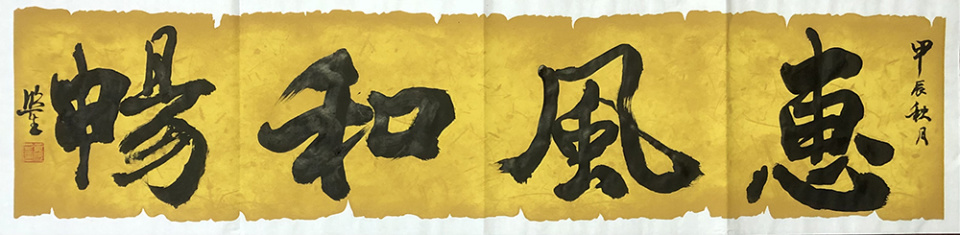 甲辰秋月
惠風和暢